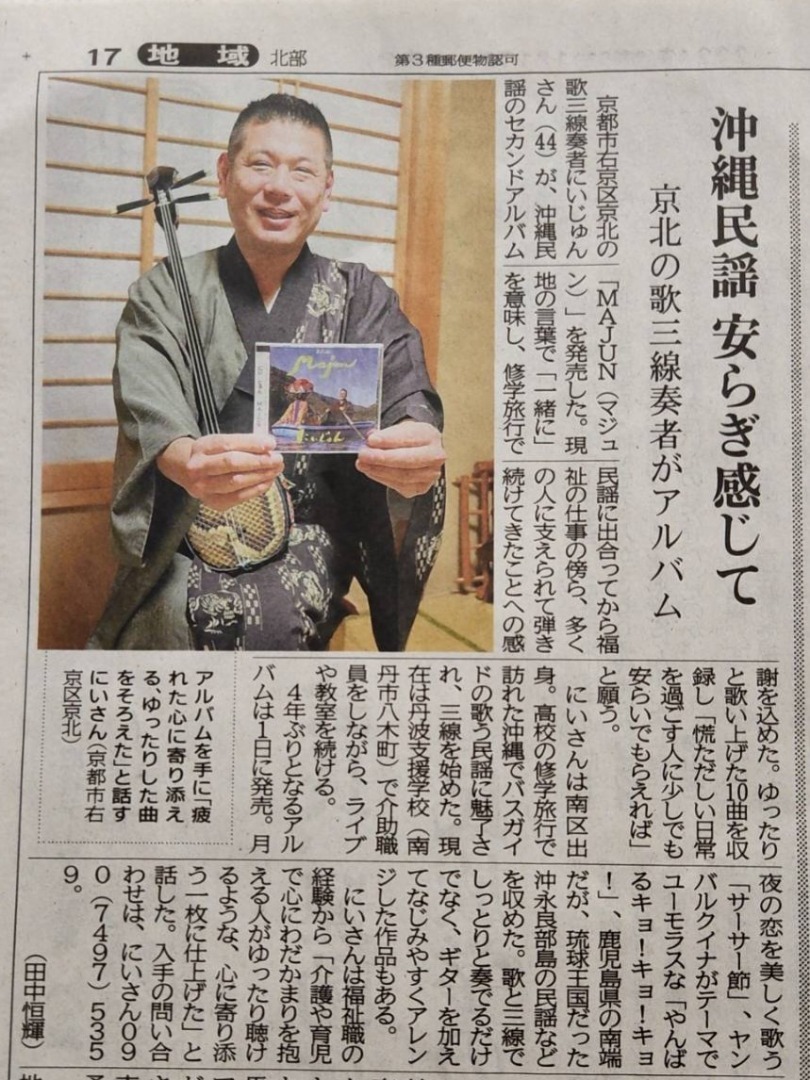 17 地域 北部
第3種郵便物認可
沖縄民謡 安らぎ感じて
京北の歌三線奏者がアルバム
京都市右京区京北の
歌三線奏者にいじゅん
さん(44)が、沖縄民
謡のセカンドアルバム
「MAJUN(マジュ
ン)」を発売した。現
地の言葉で「一緒に」
を意味し、修学旅行で
民謡に出合ってから福
祉の仕事の傍ら、多く
の人に支えられて弾き
続けてきたことへの感
謝を込めた。ゆったり
と歌い上げた10曲を収
録し「慌ただしい日常
を過ごす人に少しでも
安らいでもらえれば」
と願う。
にいさんは南区出
身。高校の修学旅行で
訪れた沖縄でバスガイ
ドの歌う民謡に魅了さ
れ、三線を始めた。現
在は丹波支援学校(南
丹市八木町)で介助職
員をしながら、ライブ
や教室を続ける。
4年ぶりとなるアル
バムは1日に発売。月
夜の恋を美しく歌う
「サーサー節」、ヤン
バルクイナがテーマで
ユーモラスな「やんば
るキョ!キョ!キョ
!」、鹿児島県の南端
だが、琉球王国だった
沖永良部島の民謡など
を収めた。歌と三線で
しっとりと奏でるだけ
でなく、ギターを加え
てなじみやすくアレン
ジした作品もある。
にいさんは福祉職の
経験から「介護や育児
で心にわだかまりを抱
える人がゆったり聴け
るような、心に寄り添
う一枚に仕上げた」と
話した。入手の問い合
わせは、にいさん09
0(7497)535
9。
(田中恒輝)
アルバムを手に「疲
れた心に寄り添え
る、ゆったりした曲
をそろえた」と話す
にいさん(京都市右
京区京北)
Majun
にいじゅん